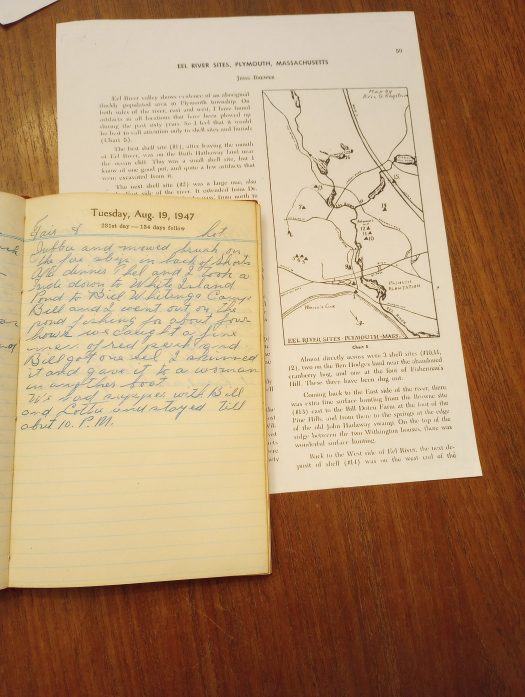 50
EEL RIVER SITES, PLYMOUTH, MASSACHUSETTS
JESSE BREWER
Eel River valley shows evidence of an aboriginal
thickly populated area in Plymouth township. On
both sides of the river, east and west, I have found
artifacts in all locations that have been plowed up
during the past sixty years. So I feel that it would
be best to call attention only to shell sites and burials
(Chart 5).
The best shell site (#1), after leaving the mouth
of Eel River, was on the Ruth Hathaway land near
the ocean cliff. This was a small shell site, but I
know of one good pot, and quite a few artifacts that
were excavated from it.
The next shell site (#2) was a large one, also
side of the river. It extended from Dr.
north to
Map by
PLIMOTH
PLANTATION
EEL RIVER SITES-PLYMOUTH-MASS.
Chart 5
Almost directly across were 3 shell sites (#10,11,
12), two on the Ben Hodges land near the abandoned
cranberry bog, and one at the foot of Fisherman's
Hill. These three have been dug out.
Coming back to the East side of the river, there
was extra fine surface hunting from the Browne site
(#13) east to the Bill Doten Farm at the foot of the
Pine Hills, and from there to the springs at the edge
of the old John Hadaway swamp. On the top of the
ridge between the two Withington houses, there was
wonderful surface hunting.
Back to the West side of Eel River, the next de-
posit of shell (#14) was on the west end of the
Tuesday, Aug. 19, 1947
231st day — 134 days follow
Fair & hot
and mowed brush on
the in back of
dinner and I took a
ride down to White Island
Pond to Bill Camp
Bill and I went out on the
pond fishing for about four
hours we caught a fine
mess of red perch and
Bill got one eel. I skinned
it and gave it to a woman
in another boat
We had supper with Bill
and Lotta and stayed till
about 10. P.M.